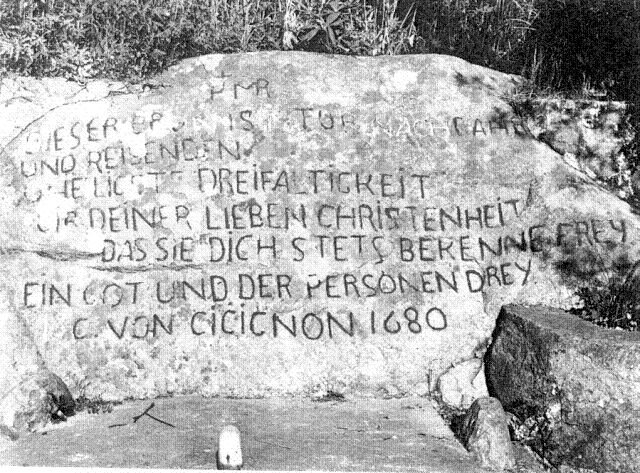 DIESER IST
UND REISENDEN
DREIFALTIGKEIT
DEINER LIEBEN CHRISTENHEIT
DAS SIE DICH STETS BEKENNE FREY
EIN GOT UND DER PERSONEN DREY
C. VON CICIGNON 1680